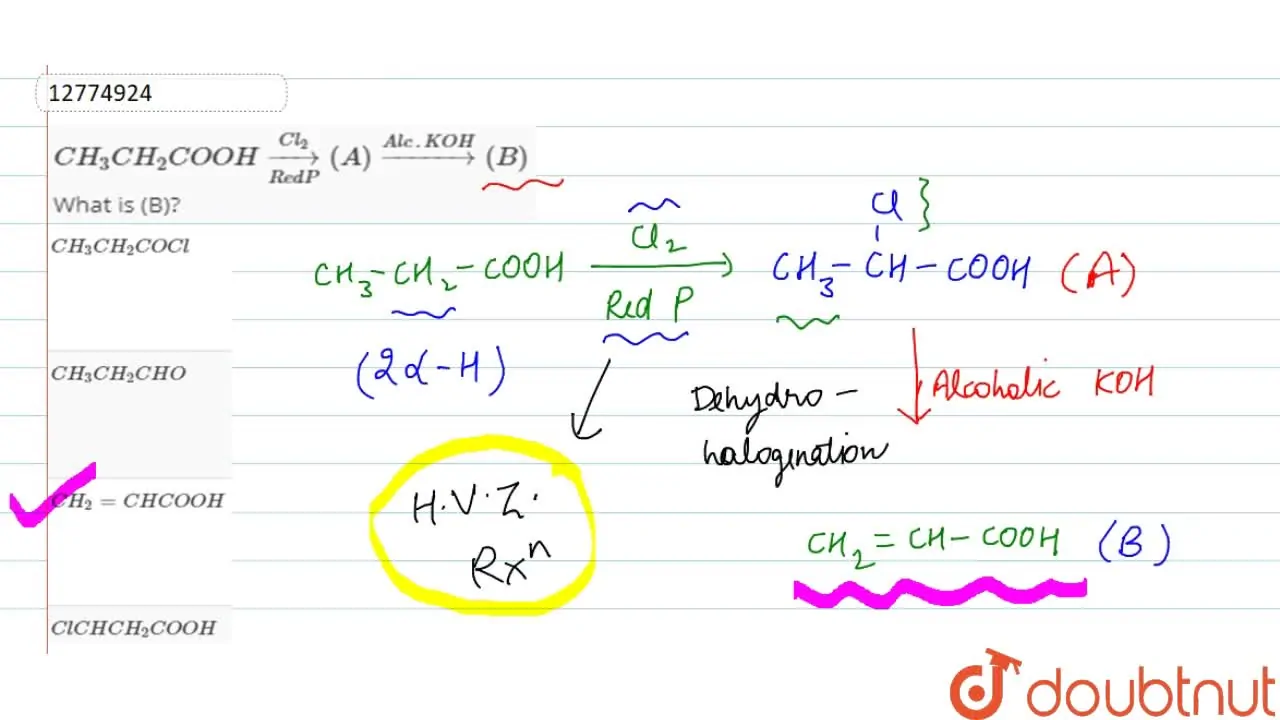 12774924
CH₃CH₂COOH \xrightarrow[Red P]{Cl₂} (A) \xrightarrow{Alc. KOH} (B)
What is (B)?
CH₃CH₂COCl
CH₃CH₂CHO
CH₂ = CHCOOH
ClCHCH₂COOH
Cl }
CH₃ – CH₂ – COOH \xrightarrow[Red P]{Cl₂} CH₃ – CH – COOH (A)
(2α-H)
Dehydro –
halogination
Alcoholic KOH
H.V.Z.
Rxⁿ
CH₂ = CH – COOH (B)
doubtnut